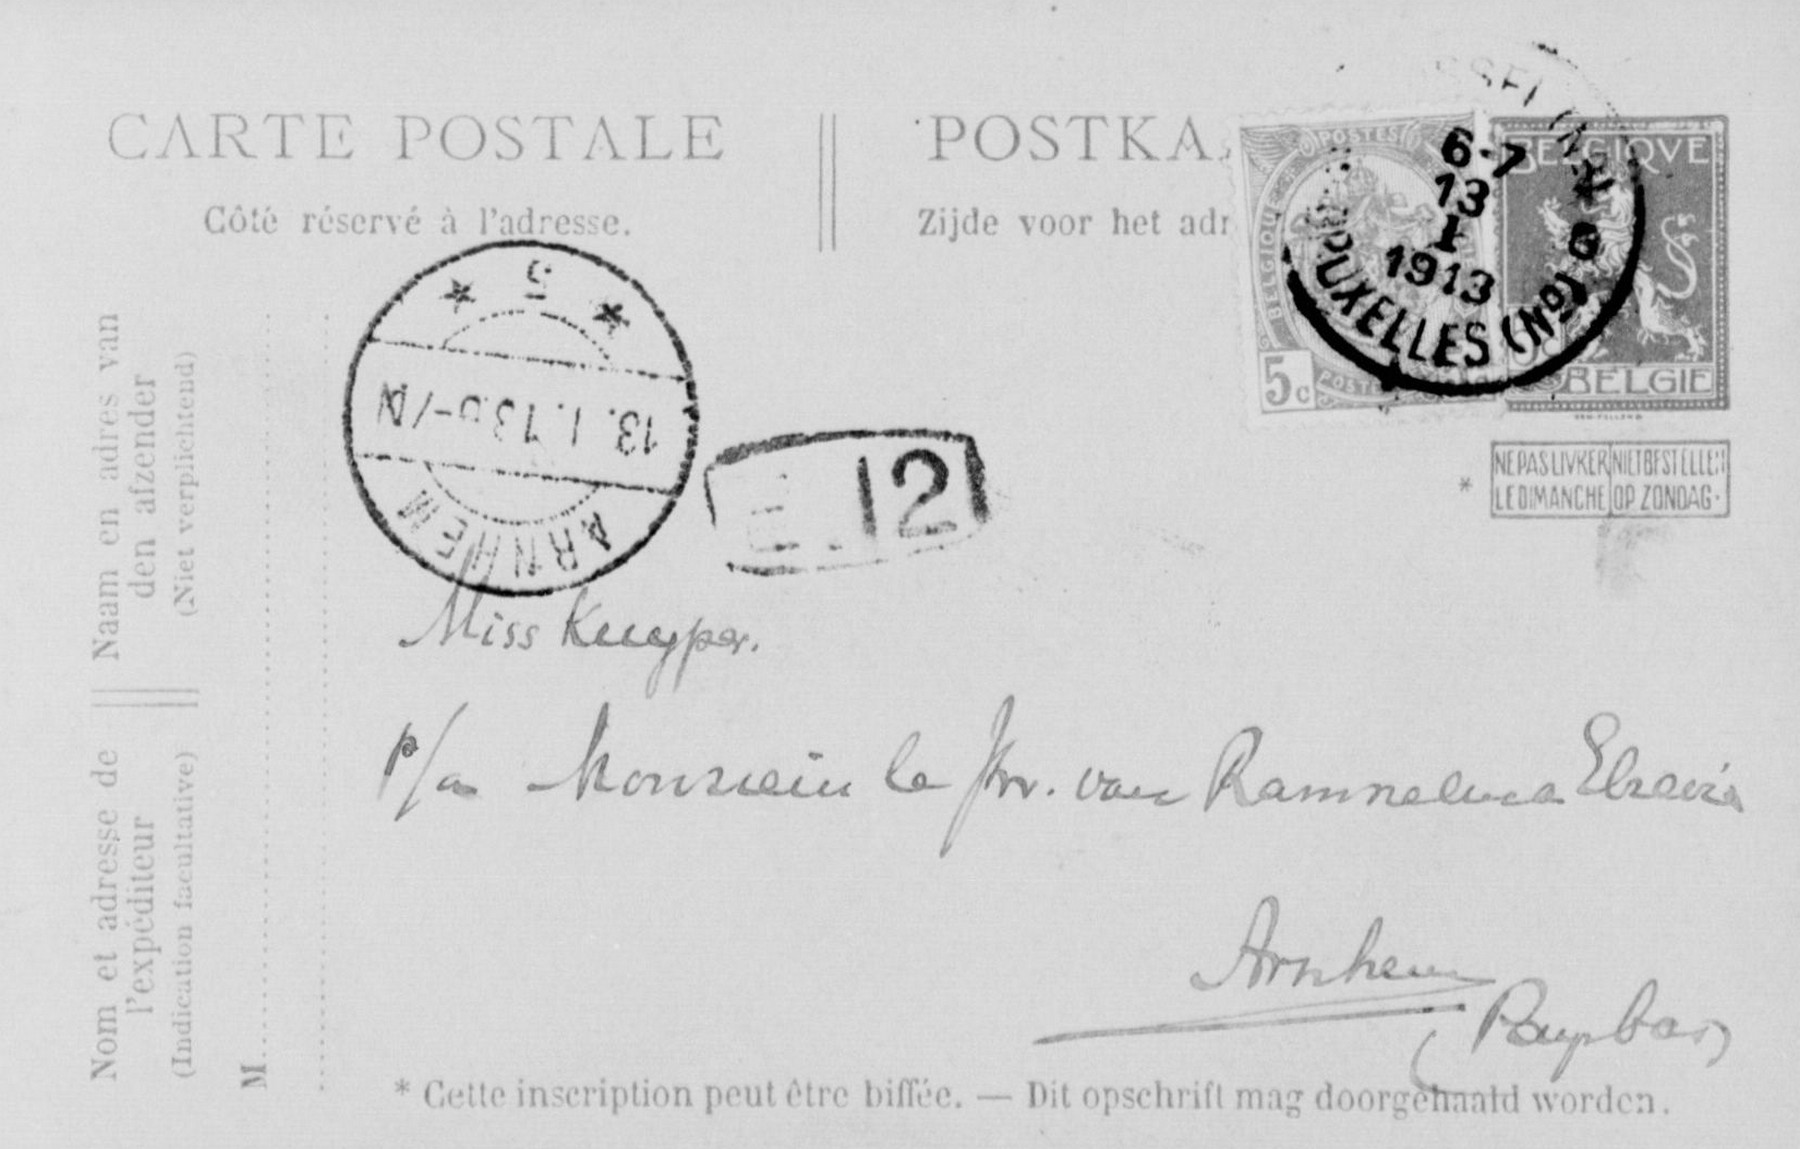 CARTE POSTALE
Côté réservé à l'adresse.
POSTKA
Zijde voor het adr
POSTES
BELGIQUE
5c
POSTE
BELGIQVE
BELGIE
6-7
13
1
1913
BRUXELLES (Nord)
NE PAS LIVRER LE DIMANCHE
NIET BESTELLEN OP ZONDAG
*
* 5 *
13.1.13
ARNHEM
12
Miss Kuyper.
p/a Monsieur le Jhr. van Rammelman Elsevier
Arnhem
(Paijsbas)
Naam en adres van
den afzender
(Niet verplichtend)
Nom et adresse de
l'expéditeur
(Indication facultative)
M
* Cette inscription peut être biffée. — Dit opschrift mag doorgehaald worden.